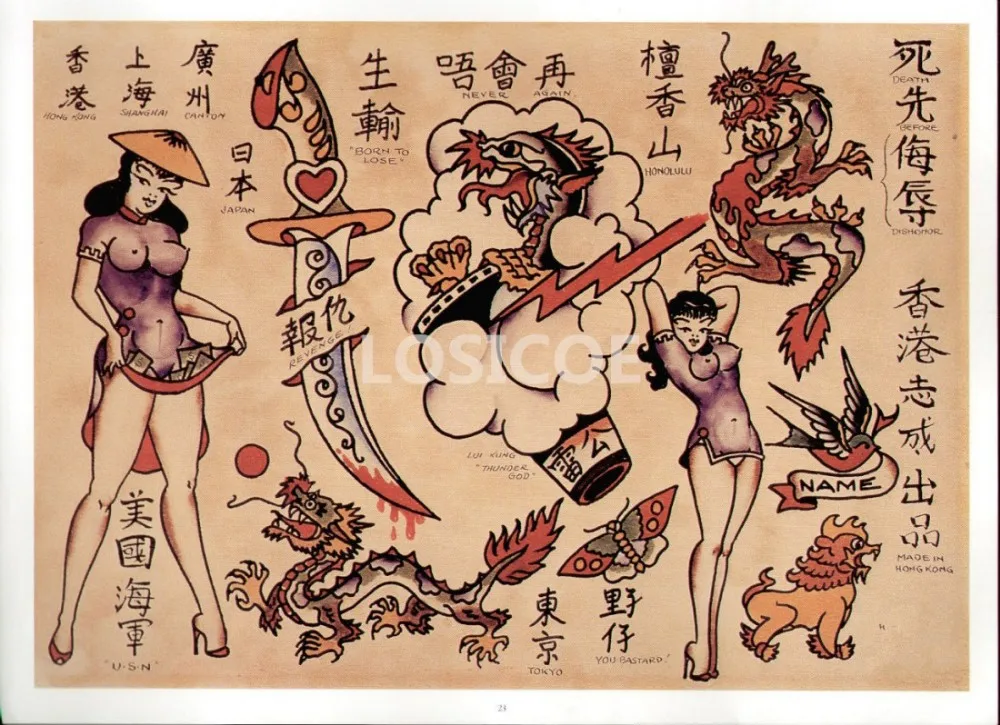 香港
HONG KONG
上海
SHANGHAI
廣州
CANTON
日本
JAPAN
生輸
"BORN TO
LOSE"
唔會再
NEVER AGAIN.
檀香山
HONOLULU
死
DEATH
先
BEFORE
侮辱
DISHONOR
報仇
REVENGE
LOSICOE
雷公
LUI KUNG
"THUNDER
GOD"
NAME
香港志成出品
MADE IN
HONG KONG
美國海軍
"U·S·N"
東京
TOKYO
野仔
"YOU BASTARD."
23